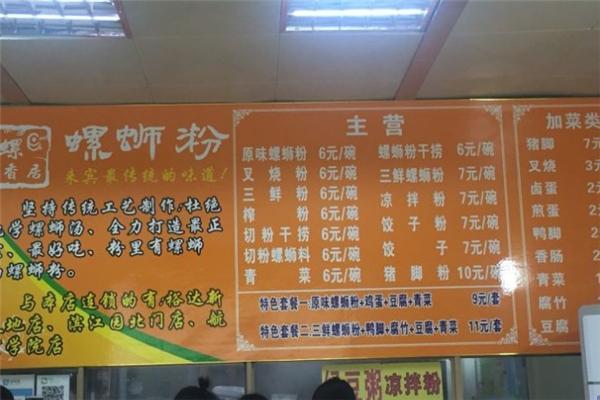 螺
香居
螺蛳粉
来宾最传统的味道!
坚持传统工艺制作、杜绝
学螺蛳汤、全力打造最正
、最好吃、粉里有螺蛳
螺蛳粉。
与本店连锁的有:裕达新
地店、滨江园北门店、航
学院店
主营
原味螺蛳粉 6元/碗 螺蛳粉干捞 6元/碗
叉烧粉 6元/碗 三鲜螺蛳粉 7元/碗
三鲜粉 6元/碗 凉拌粉 7元/碗
榨粉 6元/碗 饺子粉 7元/碗
切粉干捞 6元/碗 饺子 7元/碗
切粉螺蛳料 6元/碗 猪脚粉 10元/碗
青菜 6元/碗
特色套餐一:原味螺蛳粉+鸡蛋+豆腐+青菜 9元/套
特色套餐二:三鲜螺蛳粉+鸭脚+腐竹+豆腐+青菜 11元/套
加菜类
猪脚 7
叉烧 3
卤蛋 2
煎蛋 2
鸭脚 2
香肠 2
青菜 1
腐竹
豆腐
绿豆粥 凉拌粉